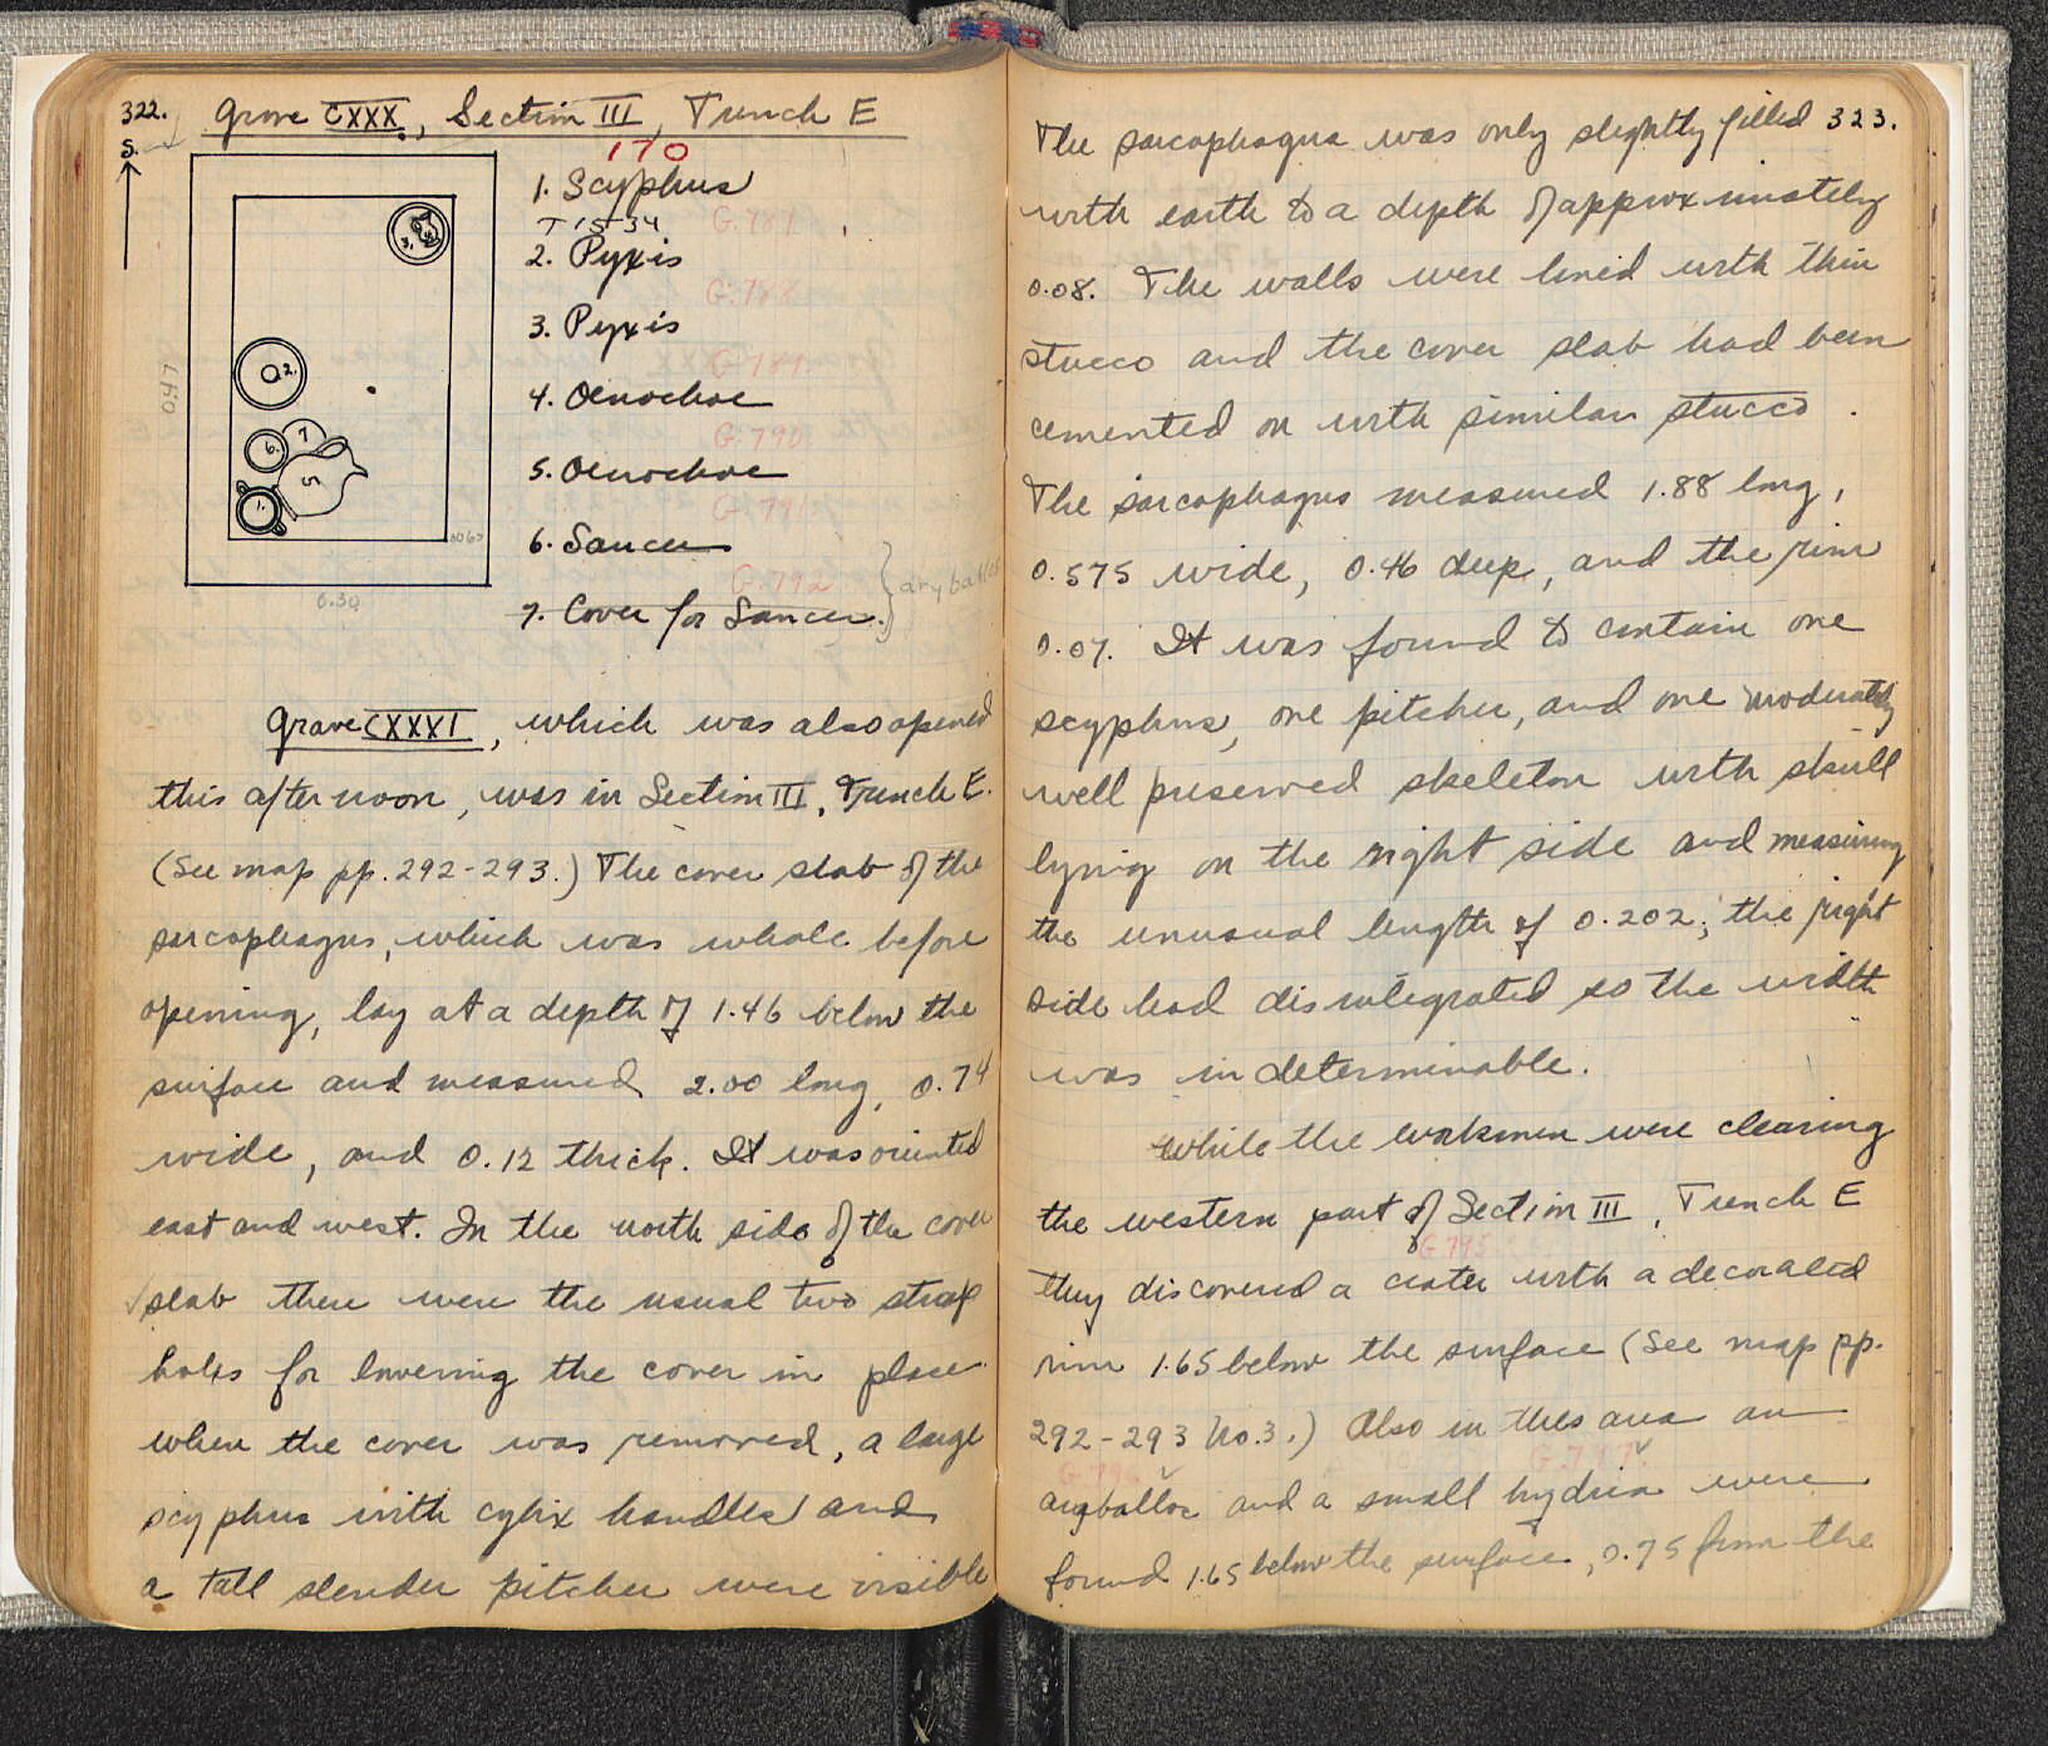 322. Grave CXXX, Section III, Trench E
S.
170
1. Scyphus
T 1534
G.787
2. Pyxis
G.788
3. Pyxis
G.789
4. Oenochoe
G.790
5. Oenochoe
G.791
6. Saucer
G.792
7. Cover for Saucer.
aryballos
3.
2.
7
6.
5
1.
0.30
Grave CXXXI, which was also opened
this afternoon, was in Section III, Trench E.
(See map pp. 292-293.) The cover slab of the
sarcophagus, which was whole before
opening, lay at a depth of 1.46 below the
surface and measured 2.00 long, 0.74
wide, and 0.12 thick. It was oriented
east and west. In the north side of the cover
slab there were the usual two strap
holes for lowering the cover in place.
When the cover was removed, a large
scyphus with cylix handles and
a tall slender pitcher were visible
323.
The sarcophagus was only slightly filled
with earth to a depth of approximately
0.08. The walls were lined with thin
stucco and the cover slab had been
cemented on with similar stucco.
The sarcophagus measured 1.88 long,
0.575 wide, 0.46 deep, and the rim
0.07. It was found to contain one
scyphus, one pitcher, and one moderately
well preserved skeleton with skull
lying on the right side and measuring
the unusual length of 0.202; the right
side had disintegrated so the width
was indeterminable.
While the workmen were clearing
the western part of Section III, Trench E
G.795
they discovered a crater with a decorated
rim 1.65 below the surface (See map pp.
292-293 No.3.) Also in this area an
G.796 G.797
aryballos and a small hydria were
found 1.65 below the surface, 0.75 from the